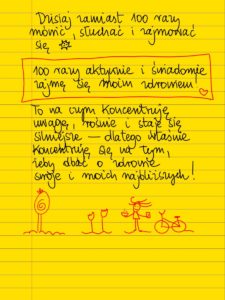 Dzisiaj zamiast 100 razy
mówić, słuchać i zajmować
się
100 razy aktywnie i świadomie
zajmę się moim zdrowiem
To na czym koncentruję
uwagę, rośnie i staje się
silniejsze — dlatego właśnie
koncentruję się na tym,
żeby dbać o zdrowie
swoje i moich najbliższych!